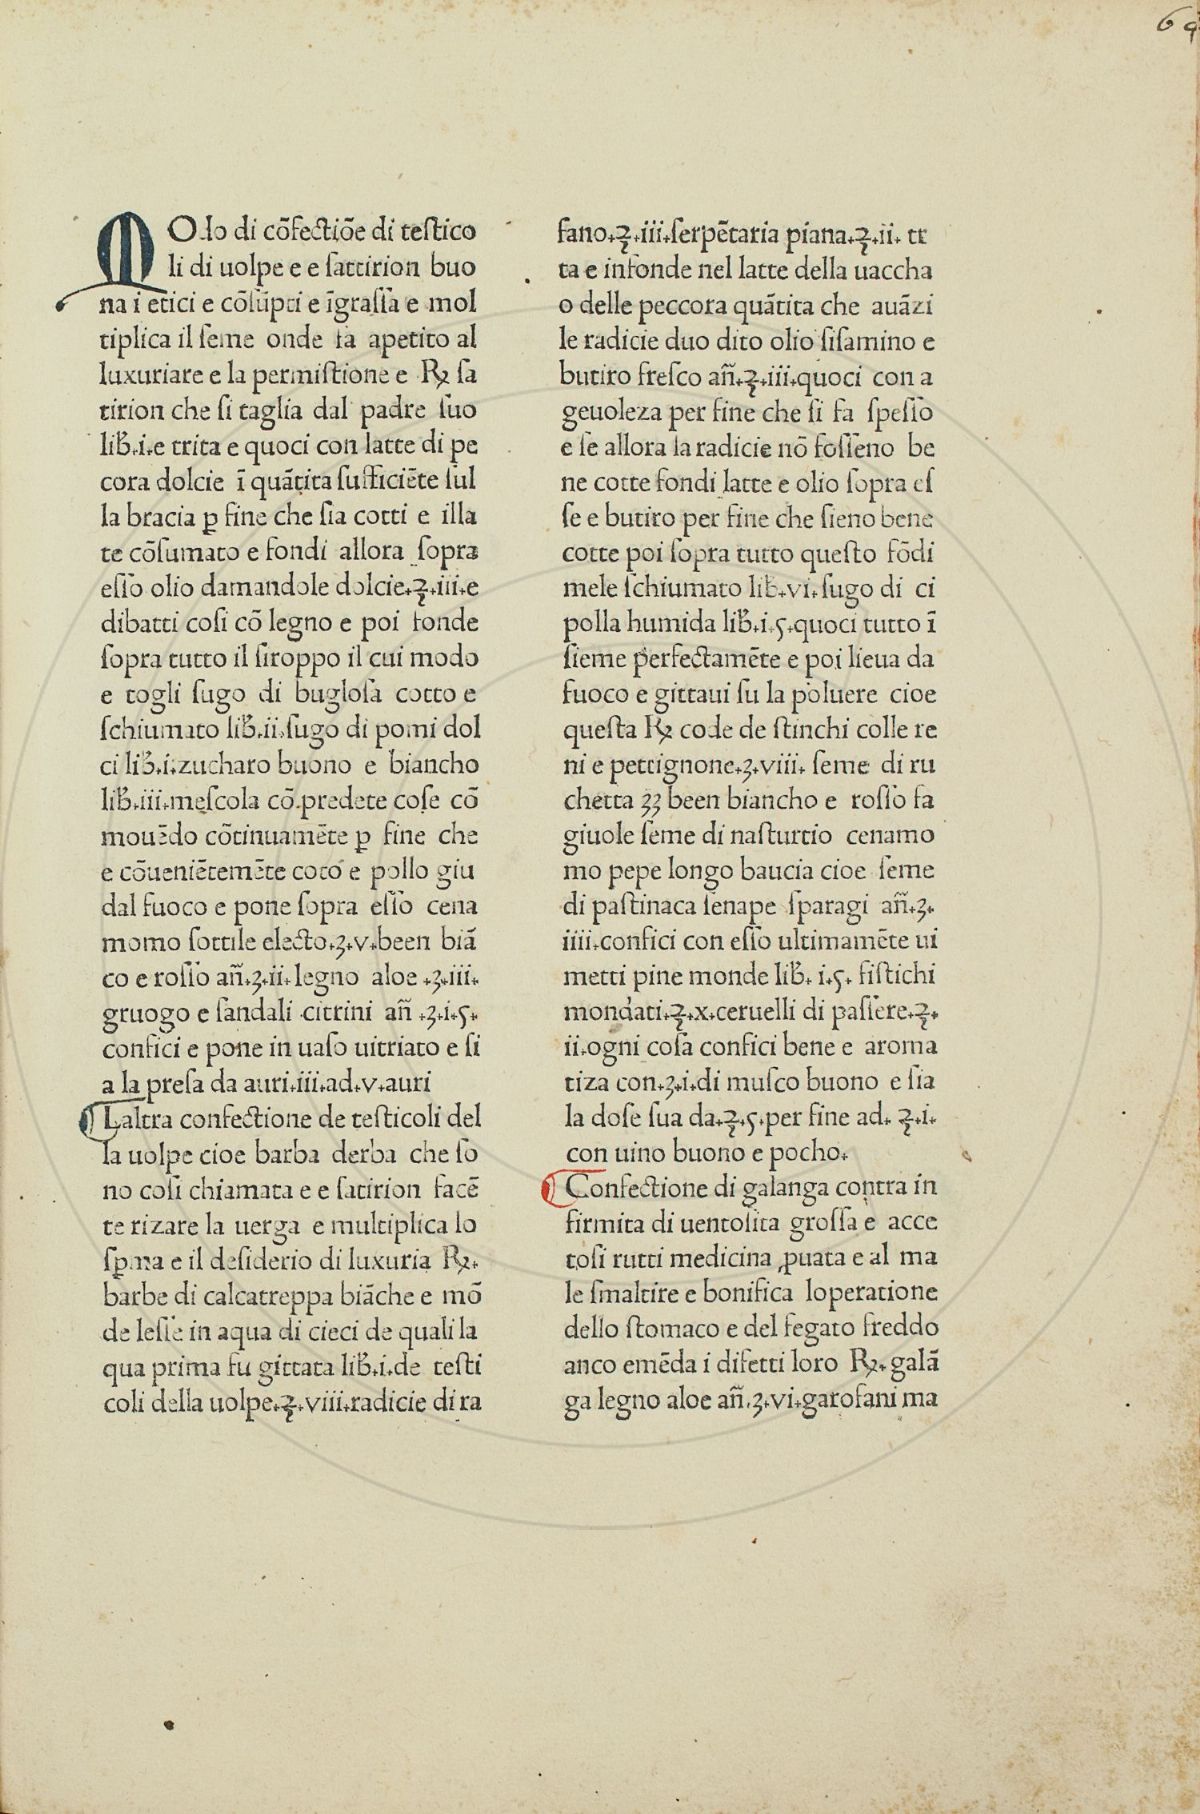 64
MOdo di cōfectiōe di testico
li di uolpe e e sattirion buo
na i etici e cōsūpti e īgrassa e mol
tiplica il seme onde fa apetito al
luxuriare e la permistione e ℞ sa
tirion che si taglia dal padre suo
lib̄.i.e trita e quoci con latte di pe
cora dolcie ī quātita sufficiēte sul
la bracia ꝑ fine che sia cotti e illa
te cōsumato e fondi allora sopra
esso olio damandole dolcie.℥.iii.e
dibatti cosi cō legno e poi fonde
sopra tutto il siroppo il cui modo
e togli sugo di buglosa cotto e
schiumato lib̄.ii.sugo di pomi dol
ci lib̄.i.zucharo buono e biancho
lib̄.iii.mescola cō.predete cose cō
mouēdo cōtinuamēte ꝑ fine che
e cōueniētemēte coto e pollo giu
dal fuoco e pone sopra esso cena
momo sottile electo.ʒ.v.been biā
co e rosso an̄.ʒ.ii.legno aloe .ʒ.iii.
gruogo e sandali citrini an̄ .ʒ.i.ς.
confici e pone in uaso uitriato e si
a la presa da auri.iii.ad.v.auri
Laltra confectione de testicoli del
la uolpe cioe barba derba che so
no cosi chiamata e e satirion facē
te rizare la uerga e multiplica lo
sꝑma e il desiderio di luxuria ℞.
barbe di calcatreppa biāche e mō
de lesse in aqua di cieci de quali la
qua prima fu gittata lib̄.i.de testi
coli della uolpe.℥.viii.radicie di ra
fano.℥.iii.serpētaria piana.℥.ii. tr
ta e infonde nel latte della uaccha
o delle peccora quātita che auāzi
le radicie duo dito olio sisamino e
butiro fresco an̄.℥.iii.quoci con a
geuoleza per fine che si fa spesso
e se allora la radicie nō fosseno be
ne cotte fondi latte e olio sopra es
se e butiro per fine che sieno bene
cotte poi sopra tutto questo fōdi
mele schiumato lib̄.vi.sugo di ci
polla humida lib̄.i.ς.quoci tutto ī
sieme perfectamēte e poi lieua da
fuoco e gittaui su la poluere cioe
questa ℞ code de stinchi colle re
ni e pettignone.ʒ.viii. seme di ru
chetta ʒʒ been biancho e rosso fa
giuole seme di nasturtio cenamo
mo pepe longo baucia cioe seme
di pastinaca senape sparagi an̄.ʒ.
iiii.confici con esso ultimamēte ui
metti pine monde lib̄. i.ς. fistichi
mondati.℥.x.ceruelli di passere.℥.
ii.ogni cosa confici bene e aroma
tiza con.ʒ.i.di musco buono e sia
la dose sua da.℥.ς.per fine ad. ℥.i.
con uino buono e pocho.
Confectione di galanga contra in
firmita di uentosita grossa e acce
tosi rutti medicina ꝓuata e al ma
le smaltire e bonifica loperatione
dello stomaco e del fegato freddo
anco emēda i difetti loro ℞.galā
ga legno aloe an̄.ʒ.vi.garofani ma